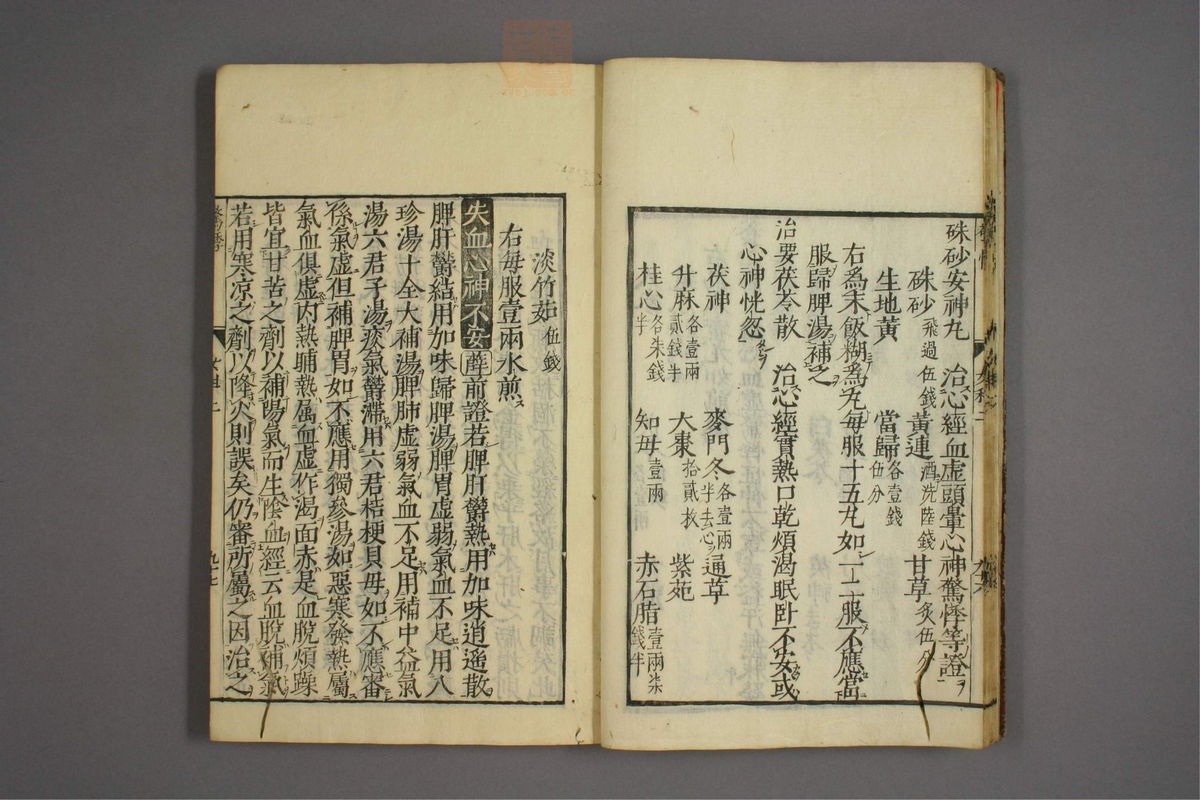 硃砂安神丸　治心經血虛頭暈心神驚悸等證
硃砂飛過伍錢　黃連酒洗陸錢　甘草炙伍分
生地黃　當歸各壹錢伍分
右為末飯糊為丸每服十五丸如一二服不應當
服歸脾湯補之
治要茯苓散　治心經實熱口乾煩渴眠卧不安或
心神恍忽
茯神　麥門冬各壹兩半去心　通草
升麻各壹兩貳錢半　大棗拾貳枚　紫菀
桂心各柒錢半　知毋壹兩　赤石脂壹兩柒錢半
淡竹茹伍錢
右每服壹兩水煎
失血心神不安　薛前證若脾肝欝熱用加味逍遙散
脾肝欝結用加味歸脾湯脾胃虛弱氣血不足用八
珍湯十全大補湯脾肺虛弱氣血不足用補中益氣
湯六君子湯痰氣欝滯用六君桔梗貝毋如不應審
係氣虛但補脾胃如不應用獨參湯如惡寒發熱屬
氣血俱虛內熱晡熱属血虛作渴面赤是血脫煩躁
皆宜甘苦之劑以補陽氣而生陰血經云血脫補氣
若用寒凉之劑以降火則誤矣仍審所屬之因治之